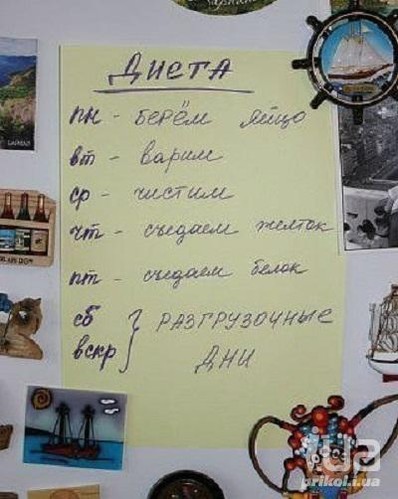 ДИЕТА
пн - БЕРЁМ ЯЙЦО
вт - варим
ср - чистим
чт - съедаем желток
пт - съедаем белок
сб } РАЗГРУЗОЧНЫЕ
вскр } ДНИ
БАЙКАЛ
ua
prikol.i.ua